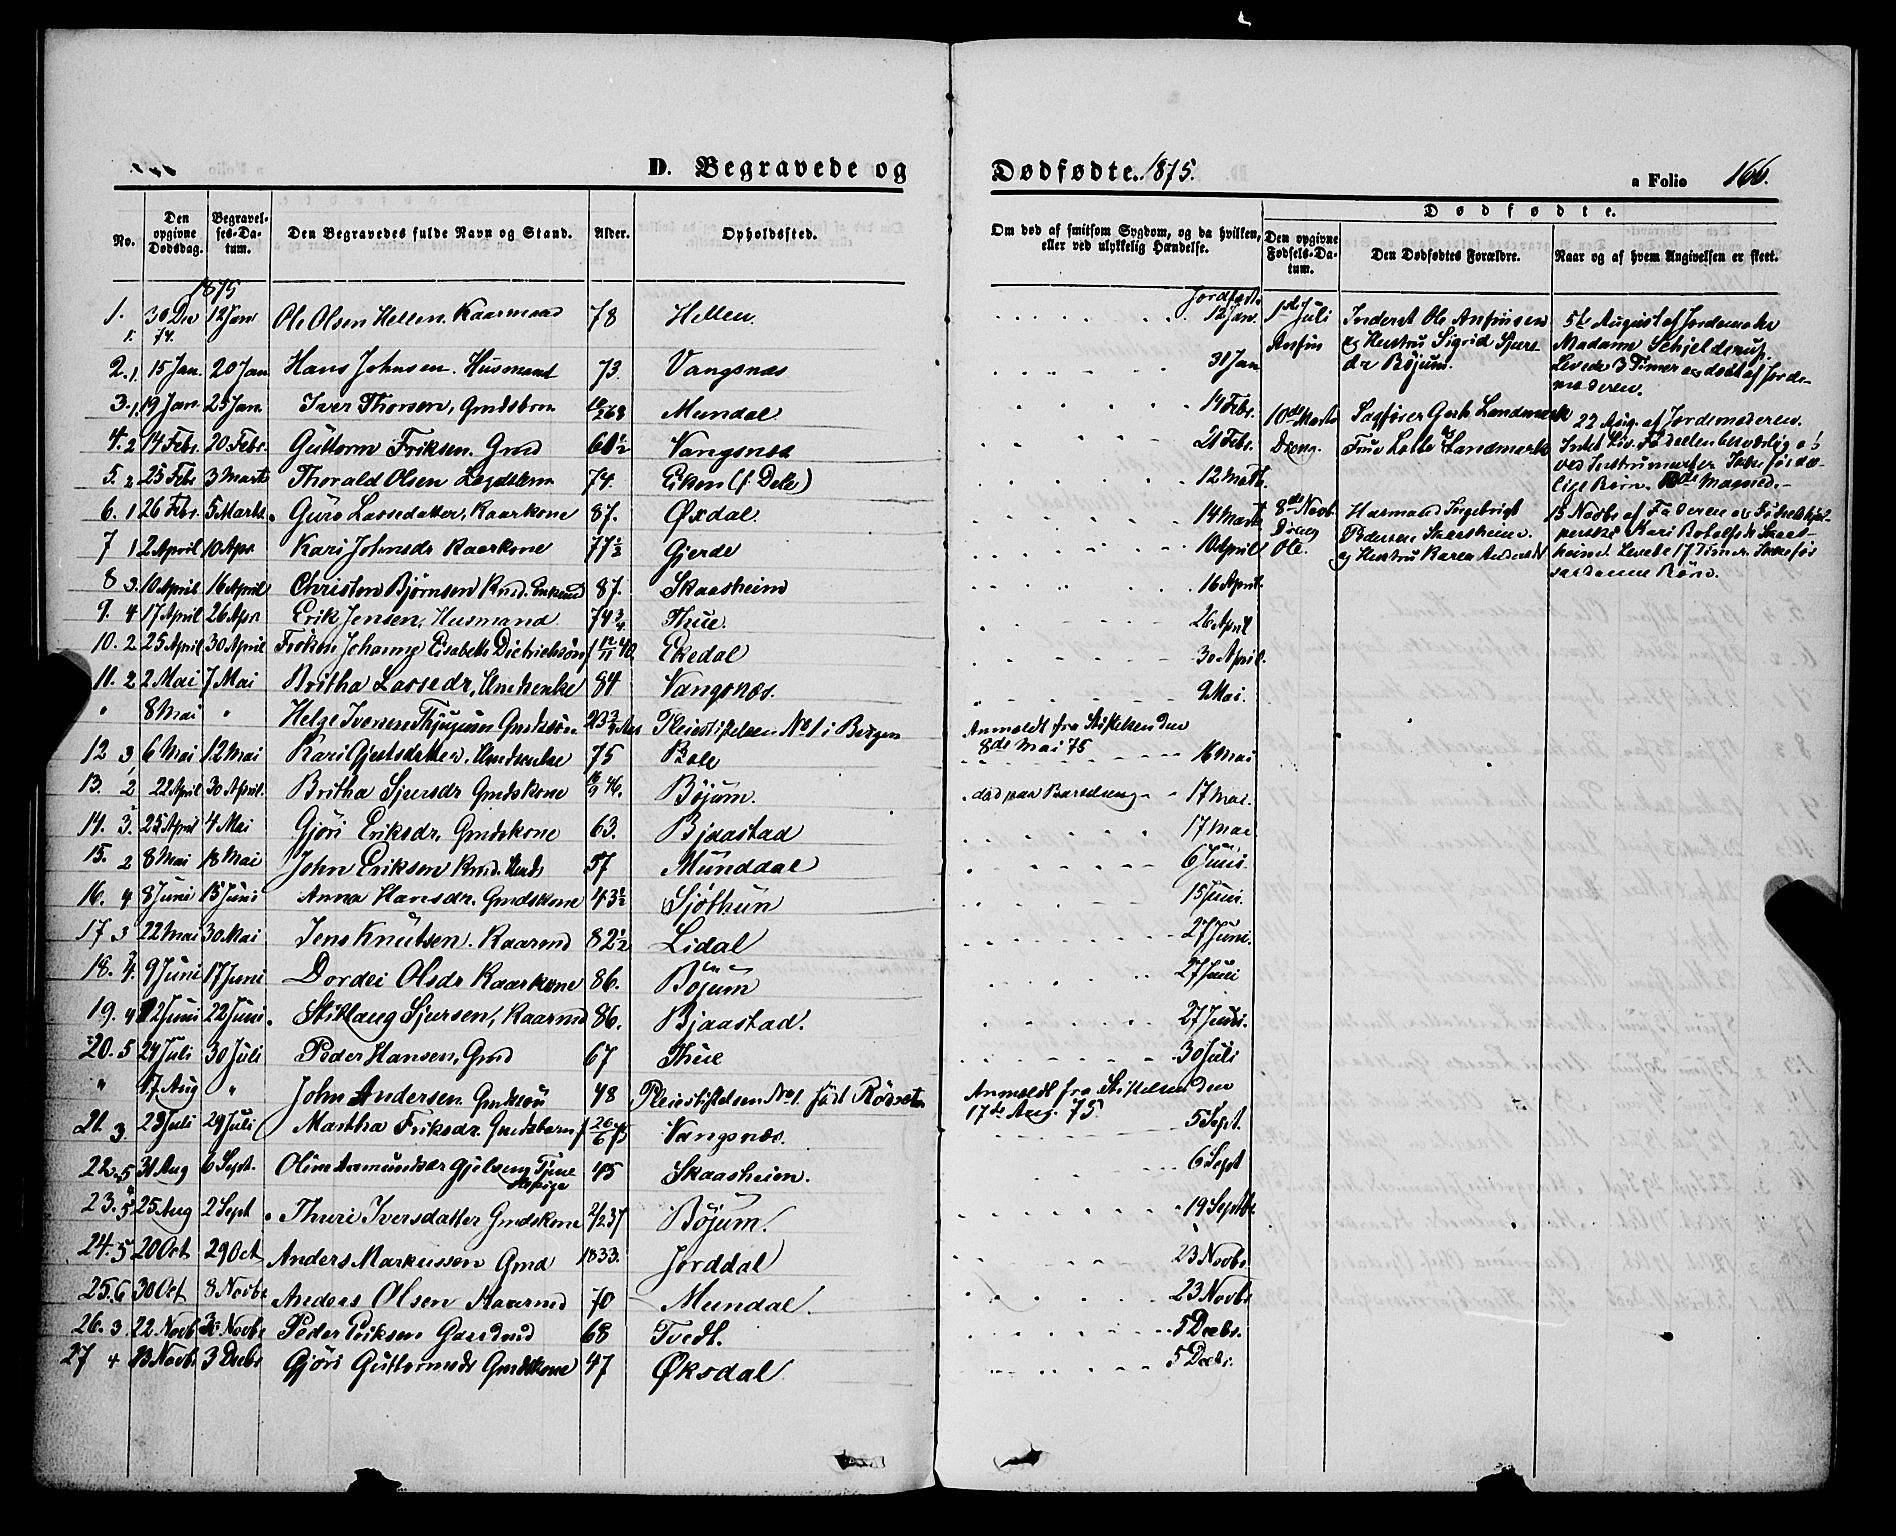 D. Begravede og
Dødfødte. 1875.
a Folio 166.
No.
Den opgivne Dødsdag.
Begravelses-Datum.
Den Begravedes fulde Navn og Stand.
Alder.
Opholdssted.
Om død af smitsom Sygdom, og da hvilken, eller ved ulykkelig Hændelse.
Dødfødte.
Den opgivne Fødsels-Datum.
Den Dødfødtes Forældre.
Naar og af hvem Angivelsen er skeet.
1875
1. 30 Dec 74. 12 Jan Ole Olsen Hellen. Kaarmand 78 Hellen. 12 Jan.
2. 1. 15 Jan. 20 Jan Hans Johnsen. Husmand 73. Vangsnæs 31 Jan
3. 1. 19 Jan. 25 Jan. Iver Thorsen, Gmdsbrn Mundal 14 Febr.
4. 2 14 Febr. 20 Febr. Guttorm Eriksen. Gmd 60½ Vangsnæs 21 Febr.
5. 2 25 Febr 3 Marts Thorald Olsen Lægdslem 74. Eiken (f. Dele) 12 Marts.
6. 1 26 Febr. 5 Marts. Guro Lassedatter, Kaarkone 87. Øxdal. 14 Marts
7 1 2 April 10 Apr. Kari Johnsdr Kaarkone 77½ Gjerde 10 April
8 3. 10 April 16 April Christen Bjørnsen Kmd. Enkemd 87. Skaasheim 16 April.
9. 4 17 April 26 Apr Erik Jensen, Husmand 74¾ Thue. 26 April
10. 2. 25 April 30 April Frøken Johanne Elisabeth Dietrichson f 12/11 40. Ekedal 30 April.
11. 2 2 Mai 7 Mai Britha Lassedr, Umdsenke 84 Vangsnæs. 9 Mai.
" 8 Mai " Helge Iversen Gmdssøn Pleiestiftelsen No 1 i Bergen Anmeldt fra Stiftelsen den 8de Mai 75
12 3, 6 Mai 12 Mai Kari Gjertsdatter. Umdsenke 75 Bale 16 Mai
13. 2 22 April 30 April. Britha Sjursdr Gmdskone 46. Bøjum. død paa Barselseng 17 Mai.
14. 3. 25 April 4 Mai Gjøri Eriksdr, Gmdskone 63. Bjaastad 17 Mai
15. 2 8 Mai 18 Mai John Eriksen Kmd. 57 Munddal 6 Juni.
16. 4 8 Juni 15 Juni Anna Hansdr. Gmdskone 43½ Sjøthun 15 Juni.
17. 3 22 Mai 30 Mai Jens Knutsen. Kaarmd 82½ Lidal 27 Juni.
18. 4. 9 Juni 17 Juni Dordei Olsdr Kaarkone 86. Bøjum 27 Juni
19. 4 12 Juni 22 Juni. Stiklaug Sjursen, Kaarmd 86. Bjaastad. 27 Juni.
20. 5 24 Juli 30 Juli Peder Hansen, Gmd 67 Thue 30 Juli
" 17 Aug " John Andersen. Gmdssøn 48 Pleiestiftelsen No 1. født Rødseter Anmeldt fra Stiftelsen den 17de Aug. 75
21. 3. 23 Juli 29 Juli Martha Eriksdr. Gmdsbarn f 26/6 75 Vangsnæs. 5 Sept.
22. 5 31 Aug 6 Sept. Oline Aamundsdr Gjelseng Tjenestepige 45 Skaasheim. 6 Sept
23. 5 25 Aug 2 Sept Thuri Iversdatter Gmdskone 2/2 37 Bøjum. 19 Septbr.
24. 5 20 Oct 29 Oct Anders Markussen Gmd 1833. Jorddal 23 Novbr
25. 6 30 Oct 8 Novbr Anders Olsen Kaarmd 70 Mundal. 23 Novbr
26. 3. 22 Novb 30 Novbr Peder Eriksen Gaardmd 68 Tvedt. 5 Decbr.
27 4 23 Novb. 3 Decbr Gjøri Guttormsdr Gmdskone 47 Øksdal. 5 Decbr.
1ste Juli Anfin
Inderst Ole Anfinsen
og Hustru Sigrid Sjursdr Bøjum.
5te August af Jordemoder
Madame Schjelderup.
Levede 3 Timer og døbt af Jordemoderen.
10de Marts Dreng.
Sagfører Gerh. Landmark
Fru Landmark
22 Aug. af Jordemoderen.
Intet Liv. Fødselen besværlig
ved Instrumenter
8de Novb. Dreng Ole.
Husmand Ingebrigt
Pedersen Skaasheim
og Hustru Karen
15 Novbr af Faderen og
Kari Botolfsdr Skaasheim.
Levede 17 Timer.